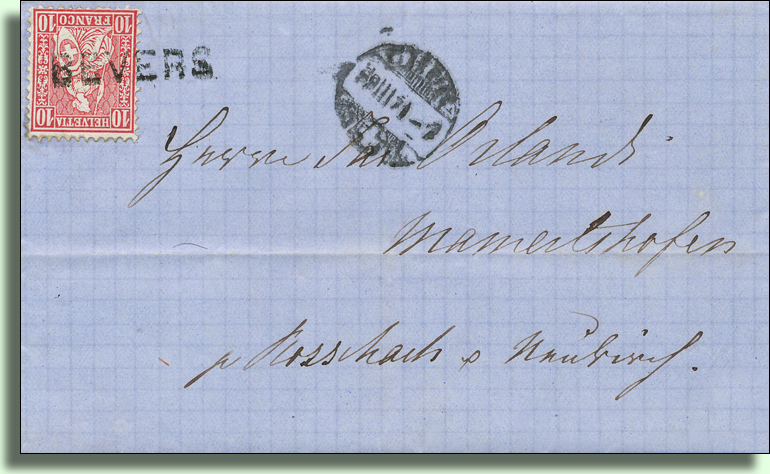 10 FRANCO 10
10 HELVETIA 10
BEVERS
Herrn Orlandi
Mamertshofen
p Rosschach & Neukirch.